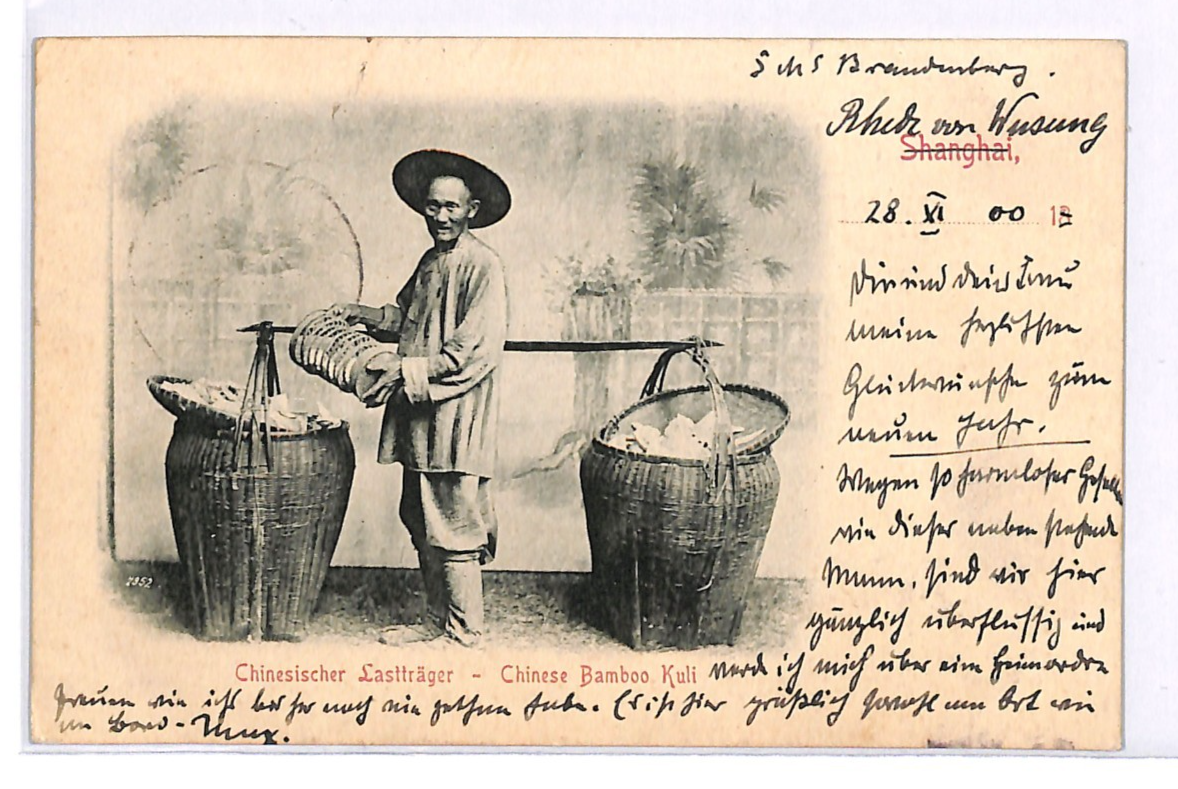 SMS Brandenburg.
Rhede von Wusung
Shanghai,
28. XI 00 1
Dir und deiner Frau
meine herzlichsten
Glückwünsche zum
neuen Jahr.
Wegen so harmloser
wie dieser neben stehende
Mann, sind wir hier
gänzlich überflüssig und
2952
Chinesischer Lastträger - Chinese Bamboo Kuli
werde ich mich über eine Heimordre
freuen wie ich's bisher noch nie gethan habe. Es ist hier gräßlich sowohl am Ort wie
an Bord - Max.